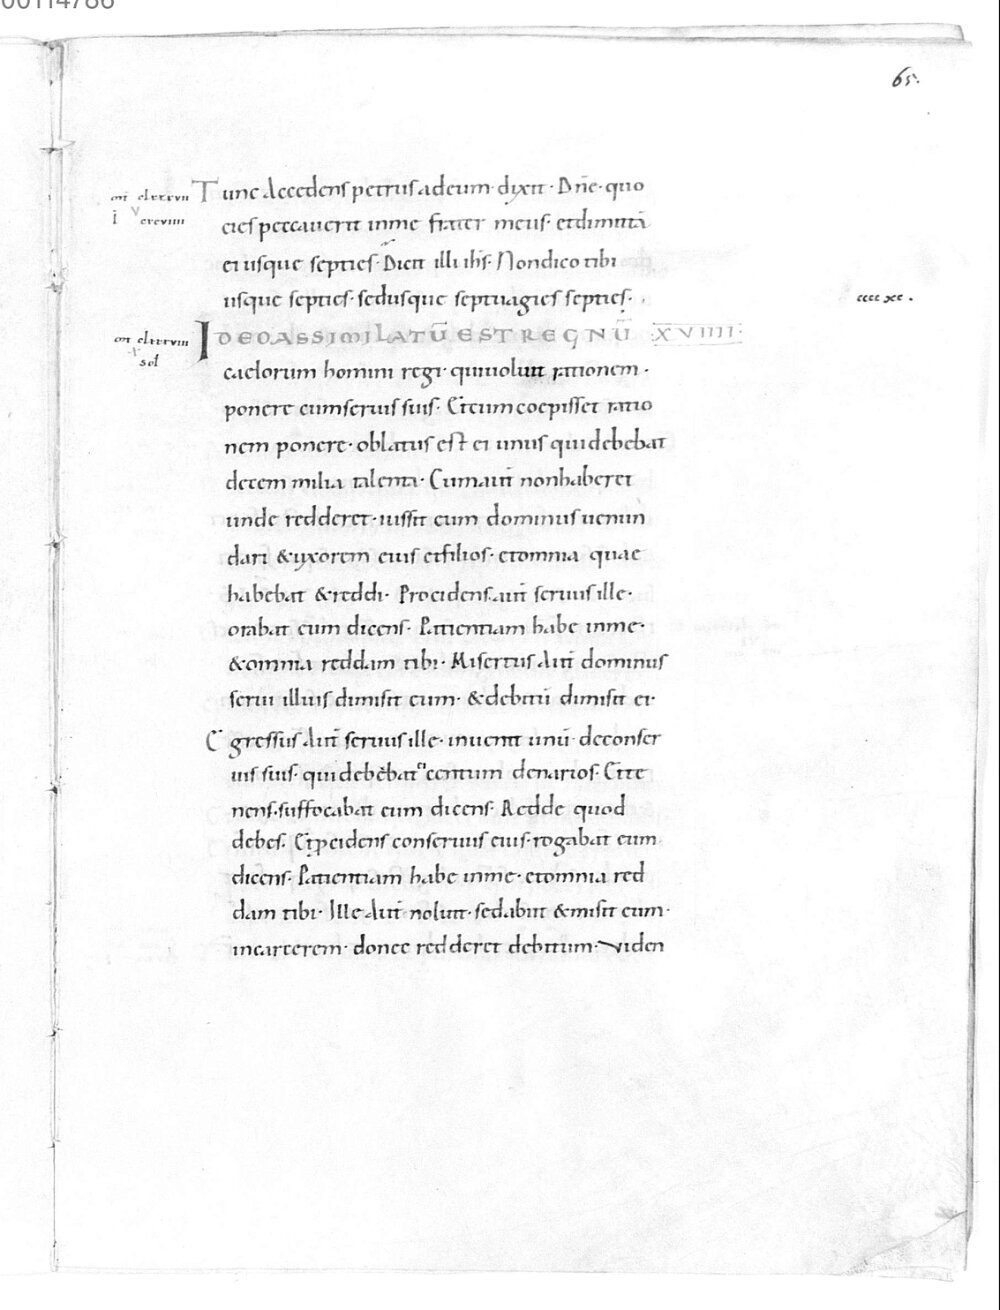 00114786
65.
Tunc Accedens petrus ad eum· dixit· Dn̄e· quo
cies peccauerit in me frater meus· et dimittā
ei usque septies· Dicit illi ih̄s· Non dico tibi
usque septies· sed usque septuagies septies·
cccc xc·
IDEO ASSIMILATŪ EST REGNŪ XVIIII·
caelorum homini regi· qui uoluit rationem·
ponere cum seruis suis· Et cum coepisset ratio
nem ponere· oblatus est ei unus qui debebat
decem milia talenta· Cum aut̄ non haberet
unde redderet· iussit eum dominus uenun
dari & uxorem eius et filios· et omnia quae
habebat & reddi· Procidens aut̄ seruus ille·
orabat eum dicens· Patientiam habe in me·
& omnia reddam tibi· Misertus Aut̄ dominus
serui illius dimisit eum· & debitū dimisit ei·
Egressus Aut̄ seruus ille· inuenit unū de conser
uis suis· qui debebat ei centum denarios· Et te
nens· suffocabat eum dicens· Redde quod
debes· Et p̱cidens conseruus eius· rogabat eum
dicens· Patientiam habe in me· et omnia red
dam tibi· Ille Aut̄ noluit· sed abiit & misit eum·
in carcerem· donec redderet debitum· Viden